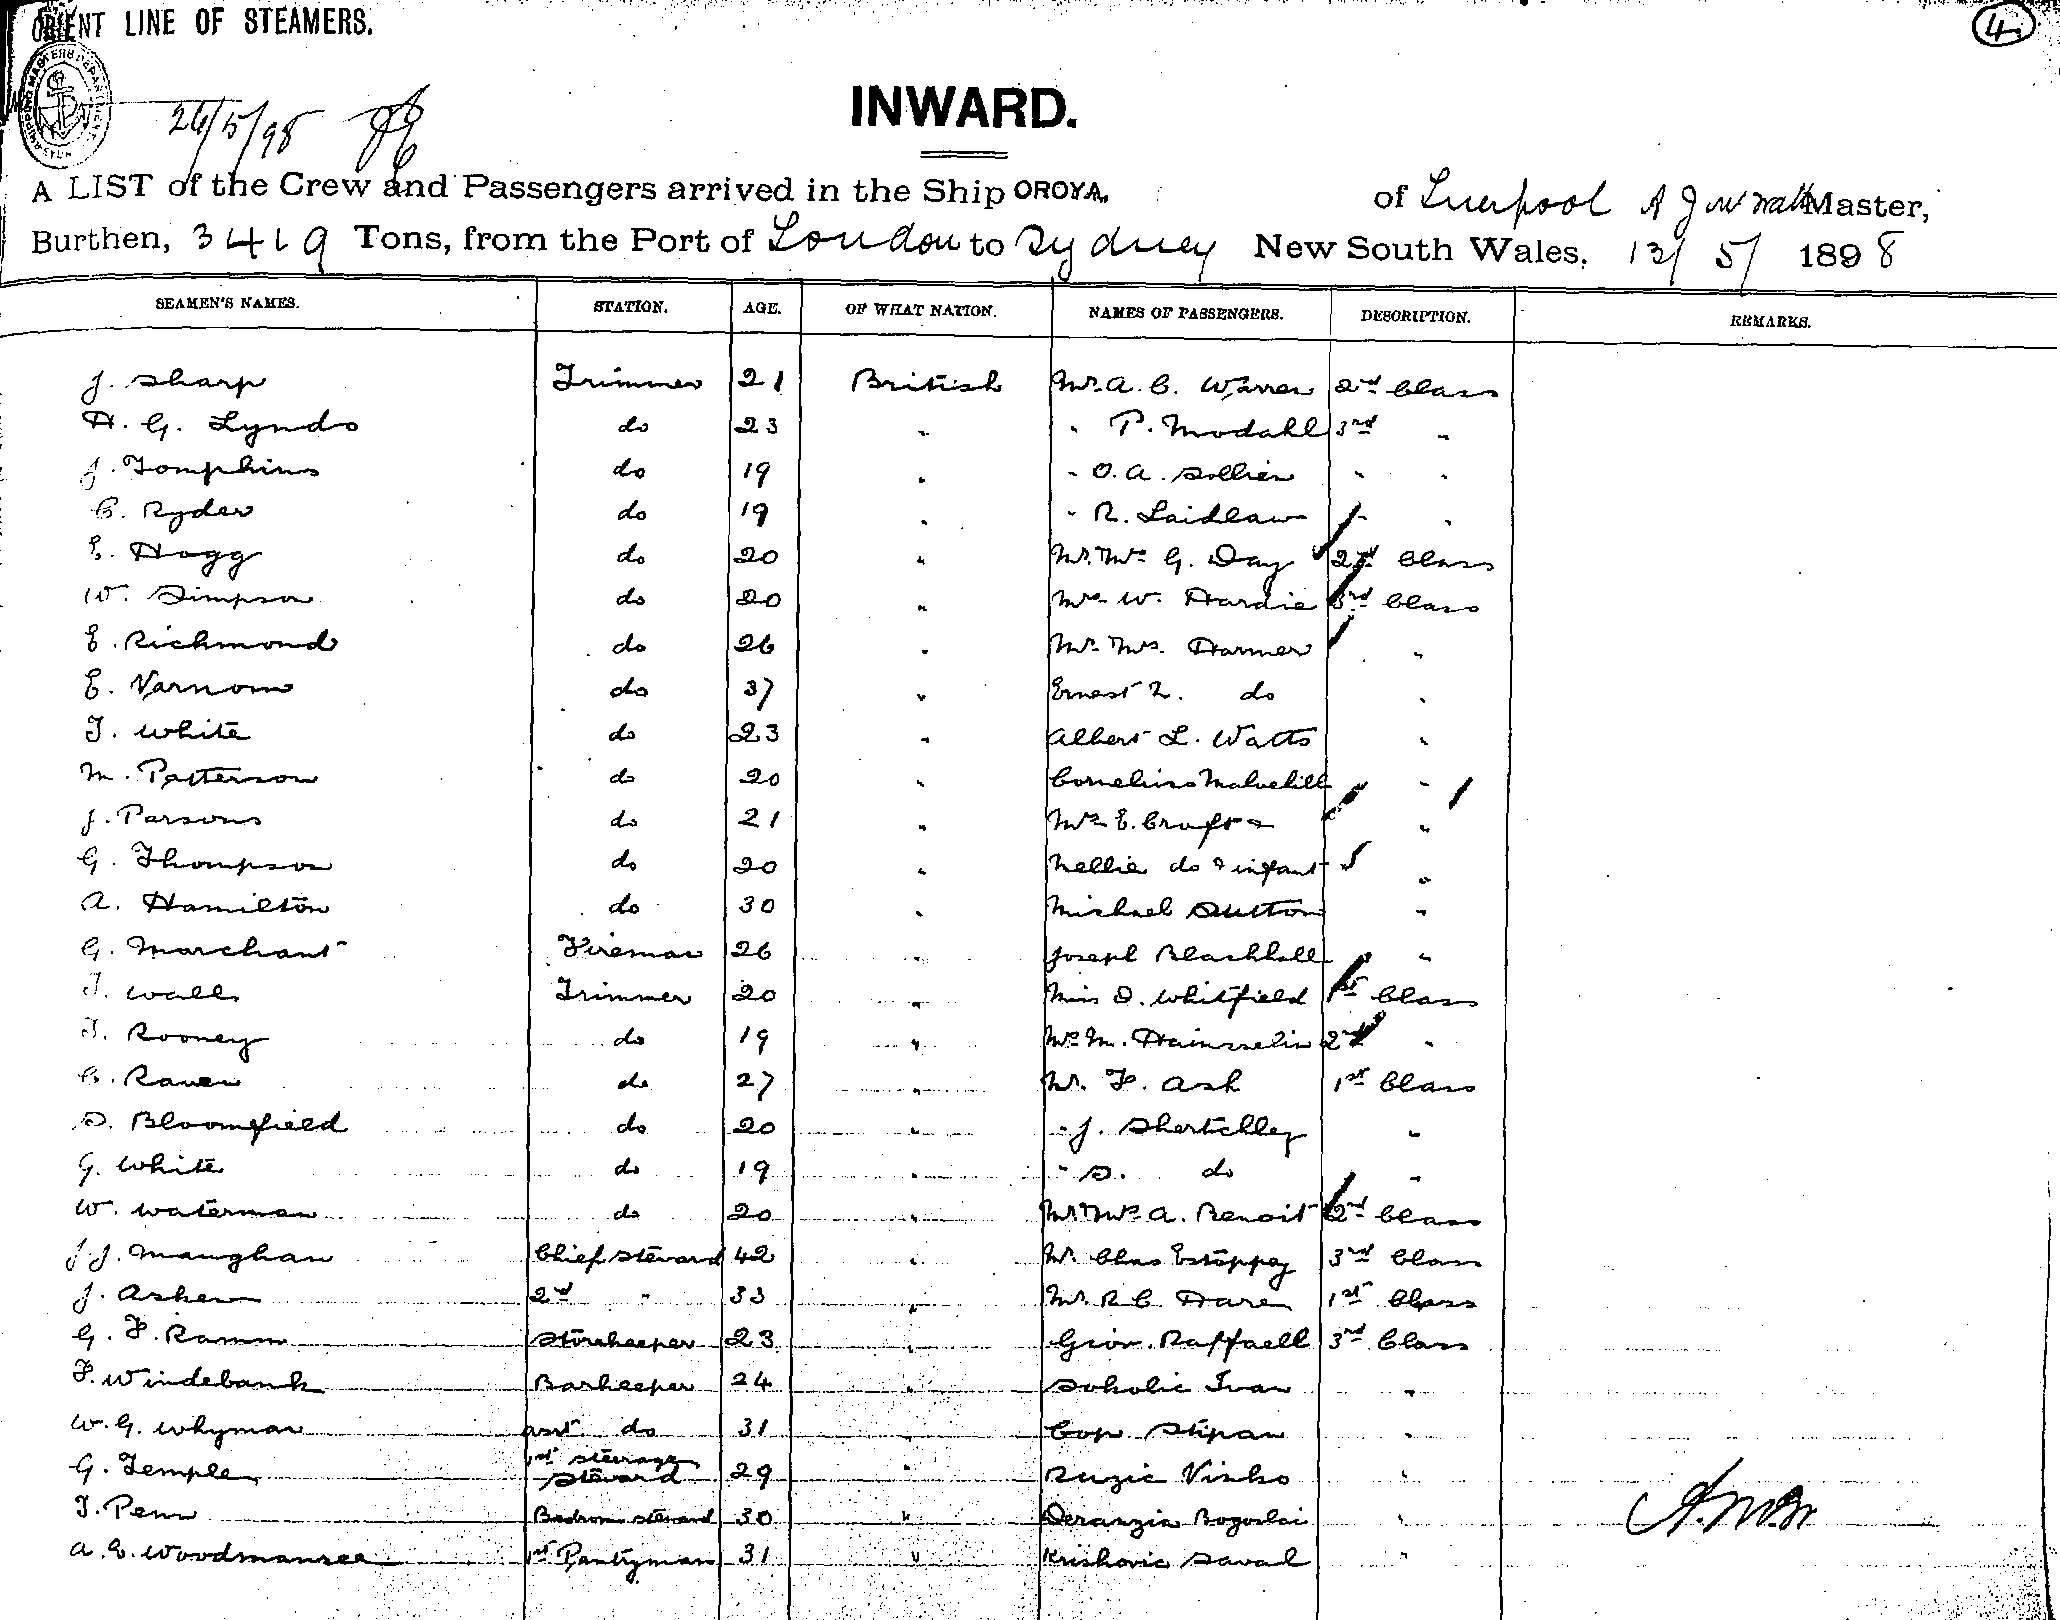 ORIENT LINE OF STEAMERS.
4
26/5/98
INWARD.
A LIST of the Crew and Passengers arrived in the Ship OROYA, of Liverpool A J Master,
Burthen, 3419 Tons, from the Port of London to Sydney New South Wales, 13/5/1898
SEAMEN'S NAMES. STATION. AGE. OF WHAT NATION. NAMES OF PASSENGERS. DESCRIPTION. REMARKS.
J. Sharp Trimmer 21 British Mr. A. C. Warren 2nd Class
H. G. Lynds do 23 " " P. Modahl 3rd "
J. Tompkins do 19 " " O. A. Sollien " "
C. Ryder do 19 " " R. Laidlaw " "
E. Hogg do 20 " Mr. Mrs G. Day 2nd Class
W. Simpson do 20 " Mrs W. Hardie 3rd Class
E. Richmond do 26 " Mr. Mrs. Harmer "
E. Varnom do 37 " Ernest do "
T. White do 23 " Albert L. Watts "
M. Patterson do 20 " Cornelius "
J. Parsons do 21 " Mrs E. Crofts "
G. Thompson do 20 " Nellie do & infant "
A. Hamilton do 30 " Michael Sutton "
G. Marchant Fireman 26 " Joseph Blashhall "
T. Wall Trimmer 20 " Miss D. Whitfield 1st Class
T. Rooney do 19 " Mrs M. Hainsselin 2nd "
C. Raven do 27 " Mr. F. Ash 1st Class
S. Bloomfield do 20 " " J. Shertcliey "
G. White do 19 " " S. do "
W. Waterman do 20 " Mr. Mrs A. Benoit 2nd Class
J. J. Maughan Chief Steward 42 " Mr. Chas Estoppey 3rd Class
J. Asken 2nd " 33 " Mr. R C Hare 1st Class
G. F. Ramm Storekeeper 23 " Giov. Raffaell 3rd Class
F. Windebank Barkeeper 24 " Soholic Ivan "
W. G. Whyman asst do 31 " Cop Stipan "
G. Temple 1st steerage steward 29 " Ruzic Vinko "
T. Penn Bedroom steward 30 " Deranzia Bogoslai "
A. E. Woodmansee 1st Pantryman 31 " Krishovic Saval "